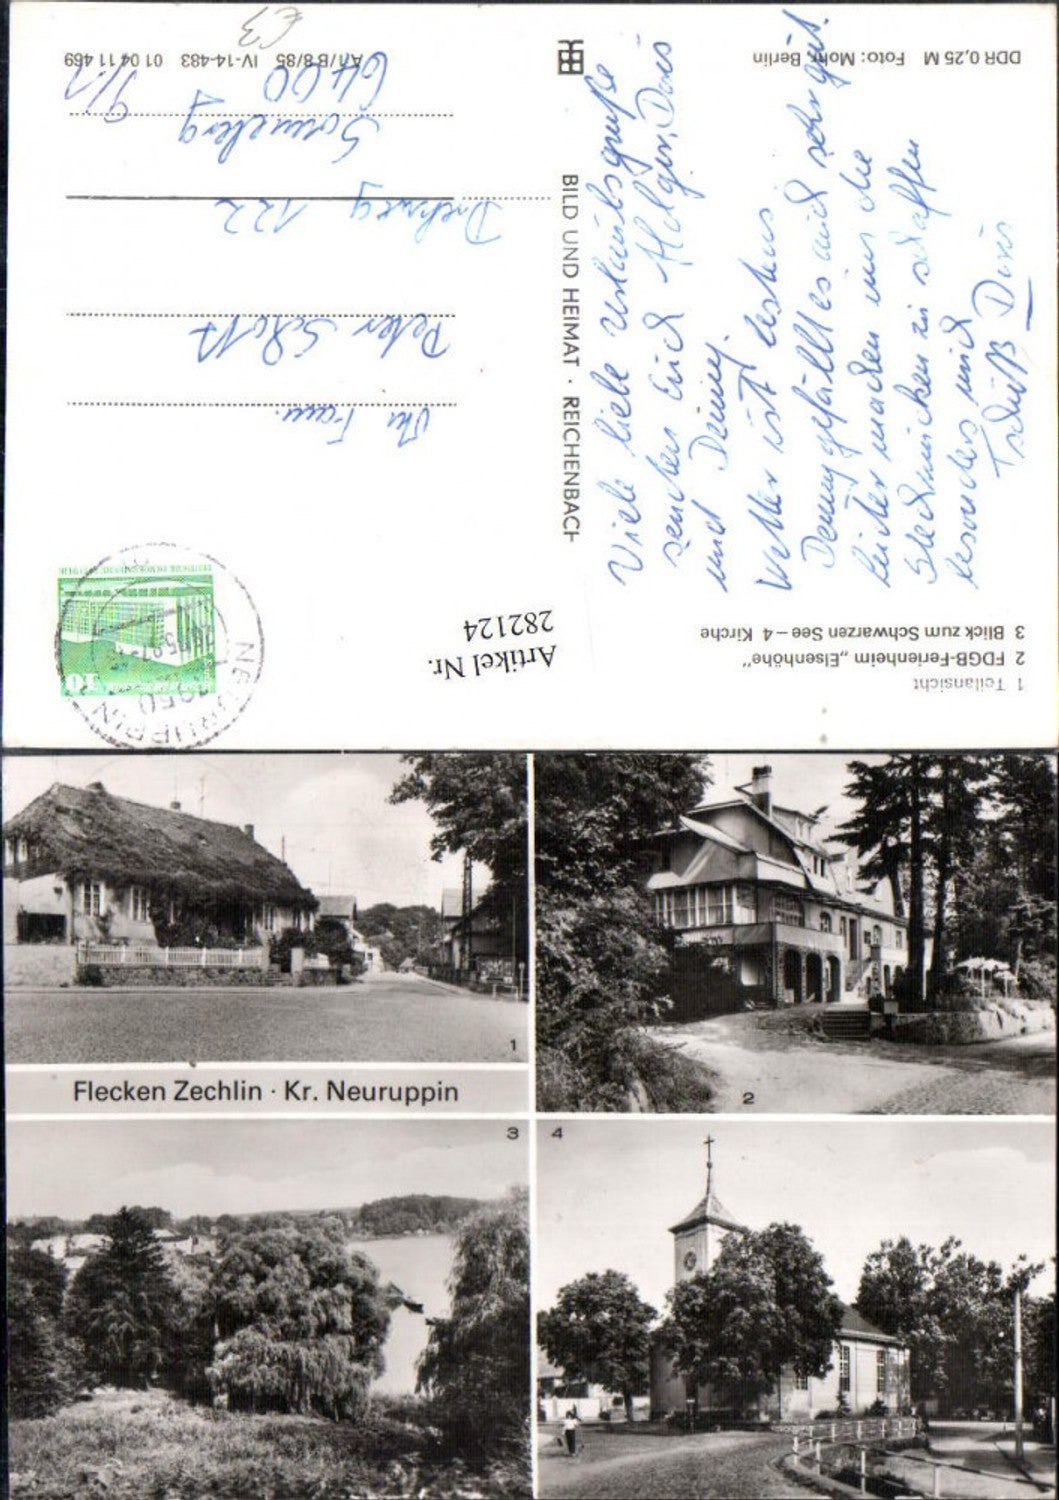 1 Teilansicht
2 FDGB-Ferienheim „Elsenhöhe“
3 Blick zum Schwarzen See – 4 Kirche
Viele liebe Urlaubsgrüße
senden Euch Holger, Doris
und Denny.
Wetter ist bestens
Denny gefällt es auch sehr gut.
Leider machen uns die
Stechmücken zu schaffen
besonders mich
Tschüß Doris
DDR 0,25 M Foto: Mohr, Berlin
BILD UND HEIMAT · REICHENBACH
Artikel Nr.
282124
10
NEURUPPIN
1950
Fam.
Peter Schott
122
Sonneberg 1
6400
9/1
A/1/B 8/85 IV-14-483 01 04 11 469
€3
1
2
Flecken Zechlin · Kr. Neuruppin
3
4